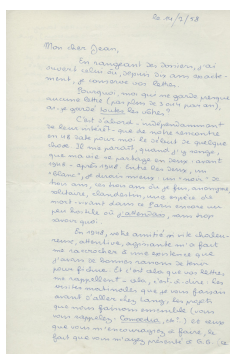 Le 21/2/58
Mon cher Jean,
En rangeant des dossiers, j'ai
ouvert celui où, depuis dix ans exacte-
ment, je conserve vos lettres.
Pourquoi, moi qui ne garde presque
aucune lettre (pas plus de 3 ou 4 par an),
ai-je gardé toutes les vôtres ?
C'est d'abord – indépendamment
de leur intérêt – que de notre rencontre
en 48 date pour moi le début de quelque
chose. Il me paraît, quand j'y songe,
que ma vie se partage en deux : avant
1945 – après 1948. Entre les deux, un
"blanc", je dirais mieux : un "noir" de
trois ans, ces trois ans où je fus, anonyme,
solitaire, clandestin, une espèce de
mort-vivant dans ce Paris encore un
peu hostile où j'attendais, sans trop
savoir quoi.
En 1948, votre amitié si vite chaleu-
reuse, attentive, agissante m'a fait
me raccrocher à une existence que
j'avais de bonnes raisons de tenir
pour fichue. Et c'est cela que vos lettres
me rappellent – cela, c'est-à-dire : les
visites matinales que je vous faisais
avant d'aller chez Lang, les projets
que nous faisions ensemble (vous
vous rappelez
que vous m'encouragiez à faire, le
fait que vous m'ayez présenté à G.G.